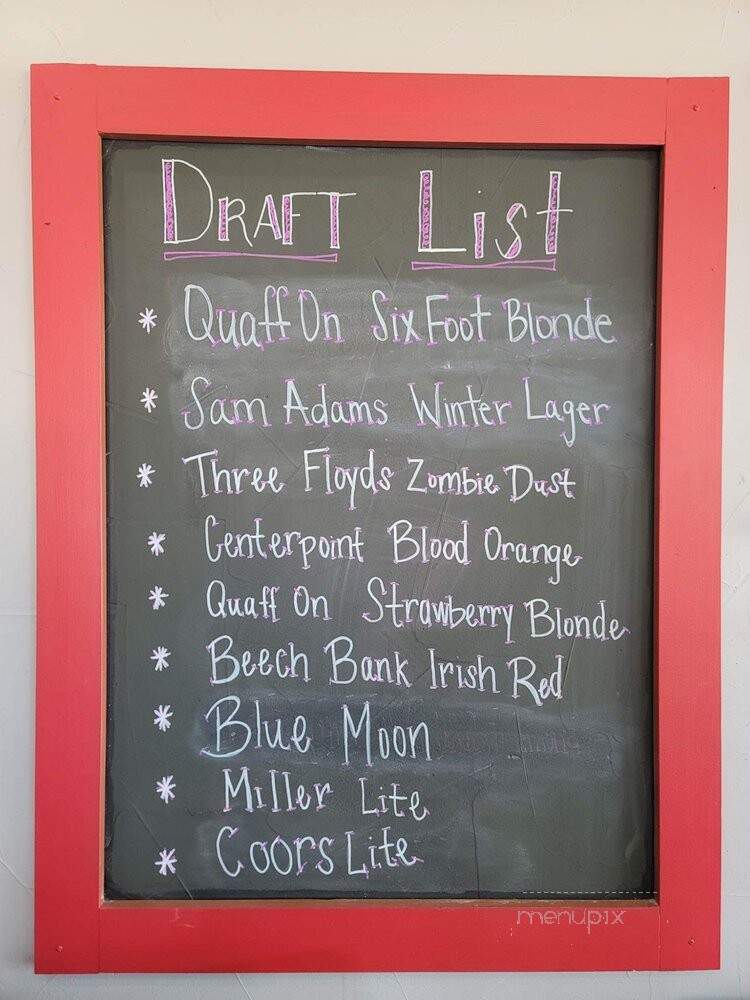 DRAFT List
* Quaff On Six Foot Blonde
* Sam Adams Winter Lager
* Three Floyds Zombie Dust
* Centerpoint Blood Orange
* Quaff On Strawberry Blonde
* Beech Bank Irish Red
* Blue Moon
* Miller Lite
* Coors Lite
menupix